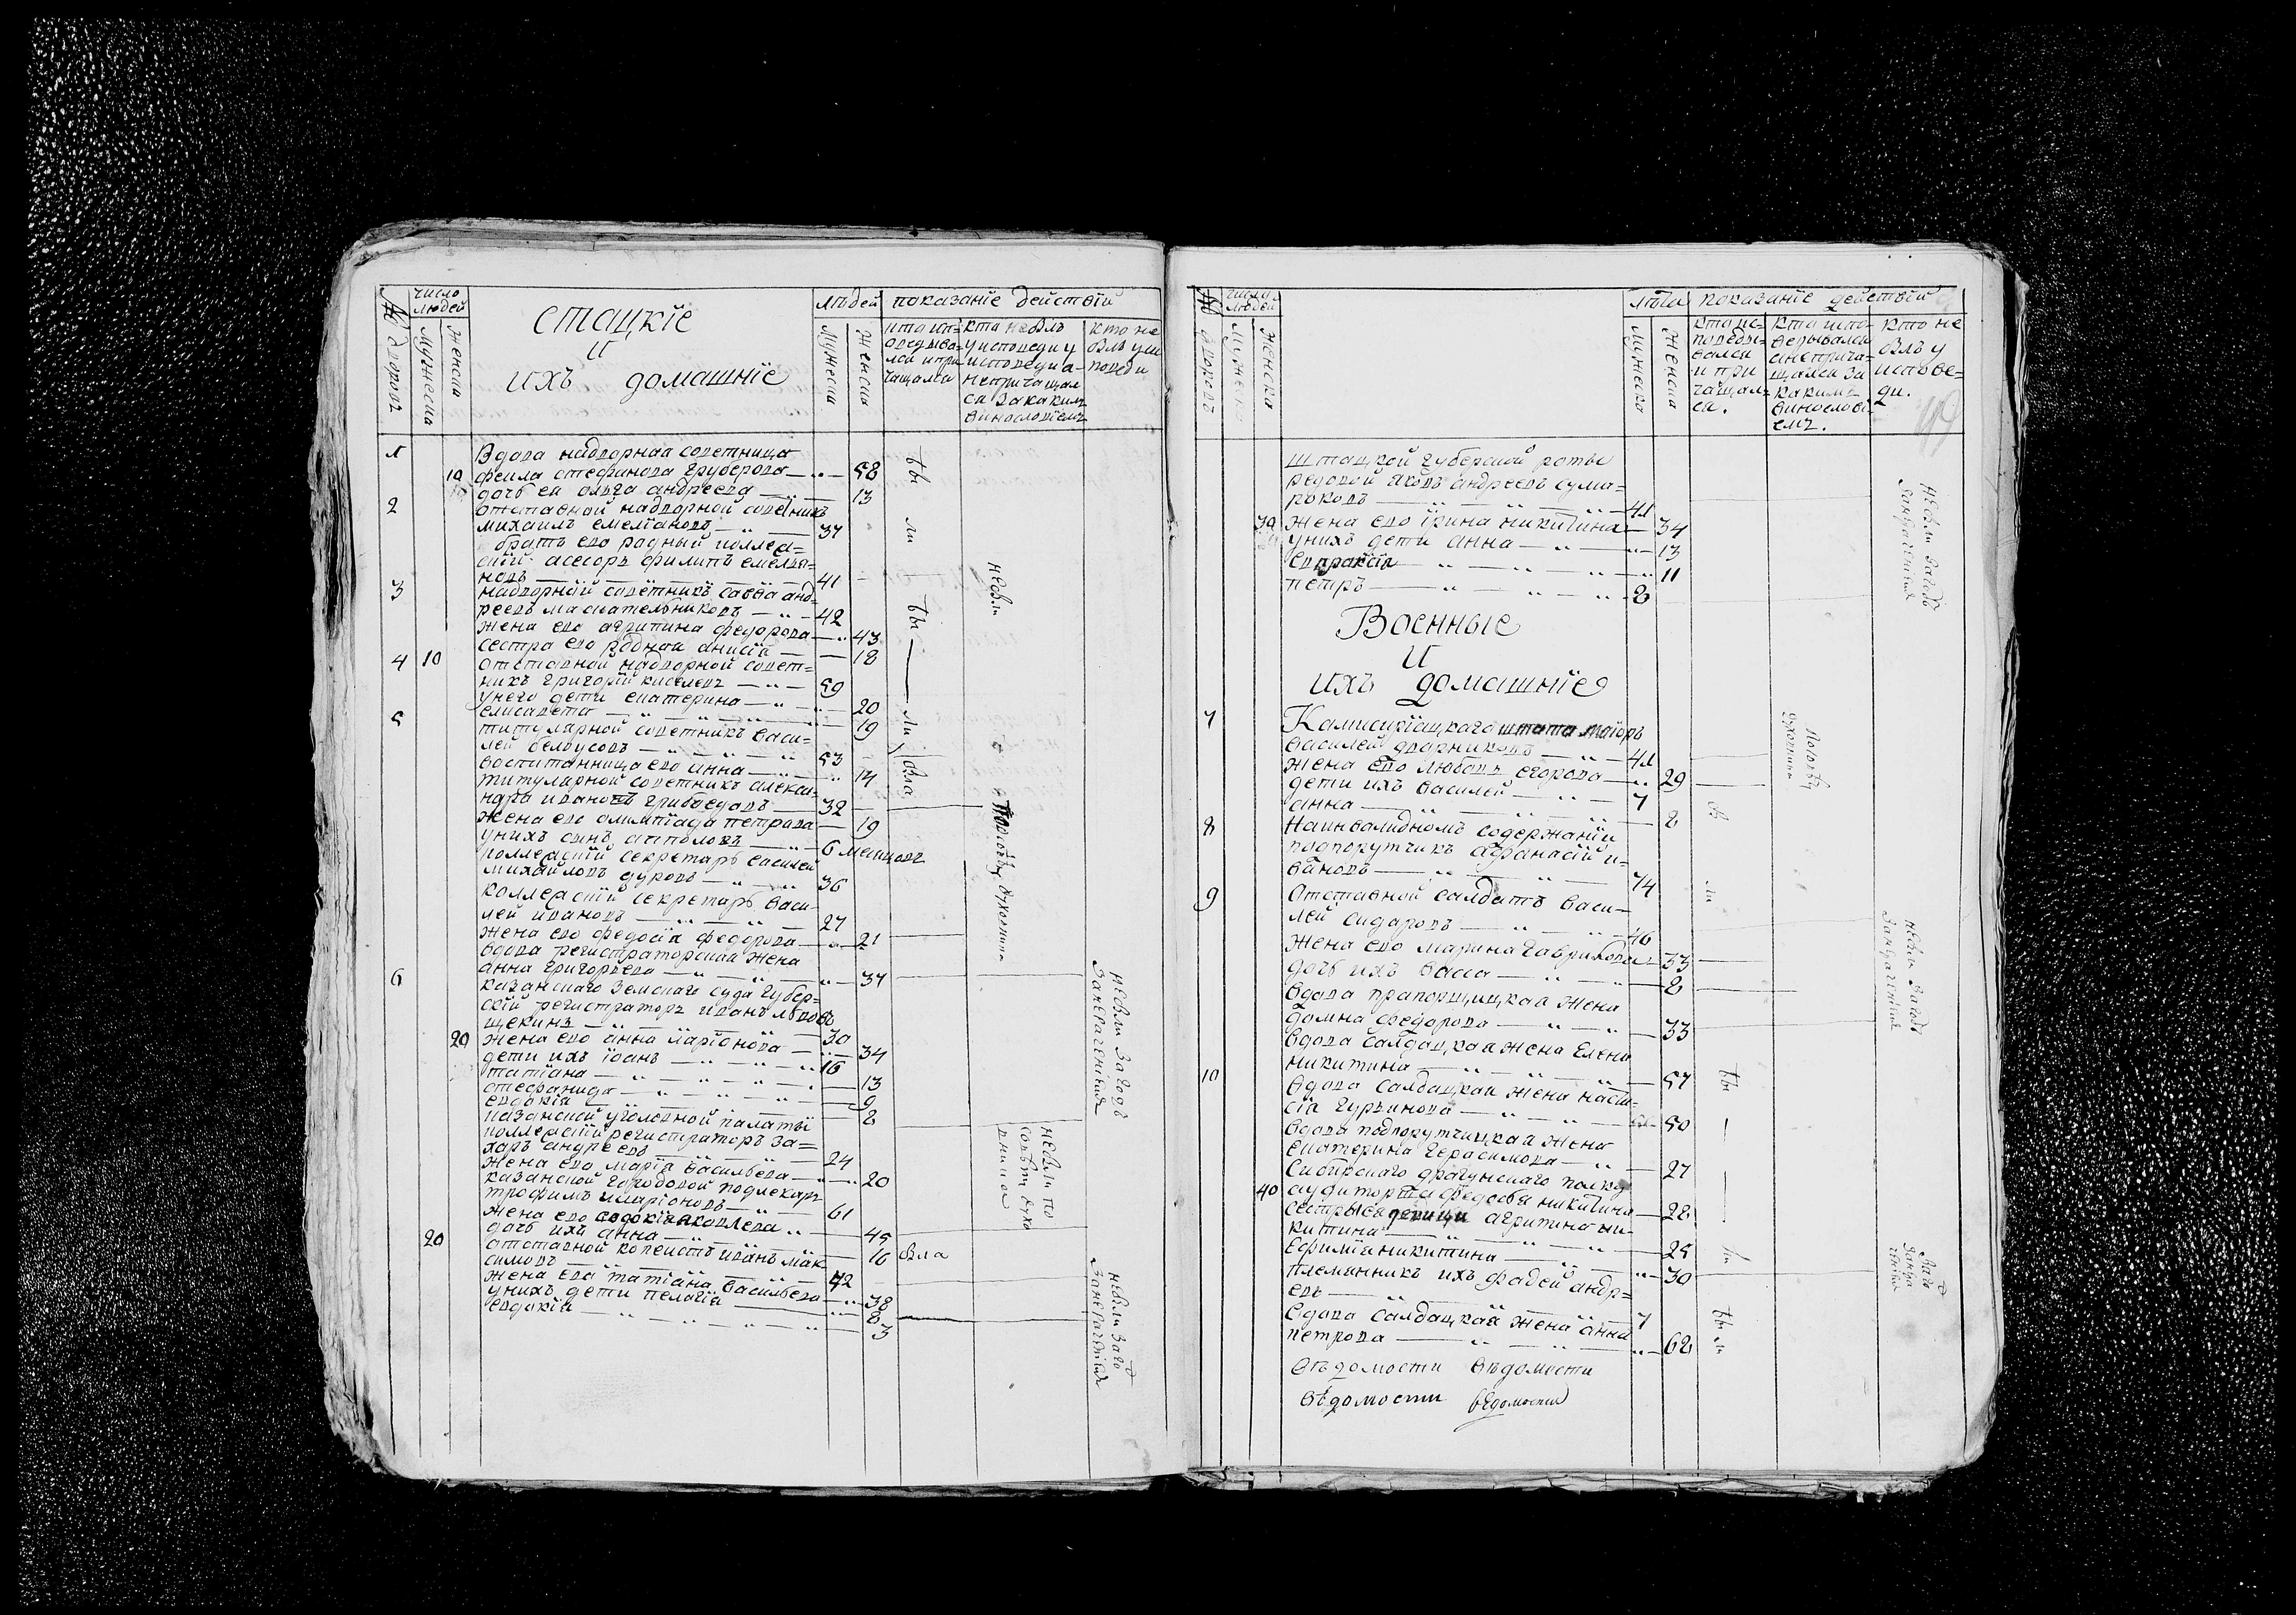 № дворовъ
число людей
мужеска
женска
стацкіе
и
ихъ домашніе
лѣтей
мужеска
женска
показаніе действій
1
Вдова надворная советница
10 фекла стефанова груберова 58
дочь ея ольга андреева 13
2 отставной надворной советникъ
михаилъ емелїановъ 37
братъ его радный коллеж=
скїй асесоръ филипъ емелья=
новъ 41
3 надворнїй советникъ савва анд=
реевъ масмательниковъ 42
жена его агрипина федорова 43
сестра его родная анисїя 18
4 10 отставной надворной совет=
никъ григорїй киселевъ 59
у него дети екатерина 20
елисавета 19
5 титулярной советникъ васи=
лей белоусовъ 53
воспитанница его анна 14
титулярной советникъ алекса=
ндръ ивановъ грибоедовъ 32
жена его олимпїада петрова 19
у нихъ сынъ апполонъ 6 месяцовъ
коллежскїй секретарь василей
михайловъ дуровъ 36
коллежскїй секретарь васи=
лей ивановъ 27
жена его федосїя федорова 21
вдова регистраторская жена
анна григорьева 34
6 казанскаго земскаго суда губер=
скїй регистраторъ иванъ
щекинъ 30
20 жена его анна ларїонова 34
дети ихъ їоанъ 16
татїана 13
стефанида 9
евдокїя 8
казанской уголовной палаты
коллежскїй регистраторъ за=
харъ андреевъ 24
жена его марїа васильева 20
казанской городовой подлекарь
трофимъ иларїоновъ 61
жена его евдокїя яковлева 45
дочь ихъ анна 16
20 отставной копеистъ иванъ мак
симовъ 42
жена его татїана васильева 38
у нихъ дети пелагїя 8
евдокїя 3
бы
ли
не были
бы
ли
была
была
не были за год
за нерачениемъ
№ дворовъ
число людей
мужеска
женска
лѣта
мужеска
женска
показаніе действій
кто ис=
поведы=
вался
и при
чащал=
ся.
кто испо=
ведывался
а не прича=
щался за
какимъ
винослові=
емъ.
кто не
былъ у
испове=
ди.
штацкой губерской роты
редовой яковъ андреевъ сума=
роковъ 41
30 жена его їрина никитина 34
у нихъ дети анна 13
евпраксїя 11
петръ 8
Военные
и
ихъ домашніе
7 Камисарїацкаго штата маїоръ
василей дворниковъ 41
жена его любовь егорова 29
дети ихъ василей 7
анна 8
8 На инвалидномъ содержанїи
подпорутчикъ афанасїй и=
вановъ 74
9 Отставной салдатъ васи=
лей сидаровъ 46
жена его марина гаврилова 33
дочь ихъ васса 8
Вдова прапорщицкая жена
домна федорова 33
Вдова салдацкая жена елена
никитина 57
10 Вдова салдацкая жена наста=
сїя гурьянова 50
Вдова подпорутчицкая жена
екатерина герасимова 27
Сибирскаго драгунскаго полку
40 аудиторша федосья никитина 28
сестры ея девицы агрипина ни=
китина 25
Ефимїя никитина 30
племянникъ ихъ фадей андр=
евъ 7
Вдова салдацкая жена анна
петрова 62
вѣдомости вѣдомости
вѣдомости вѣдомости